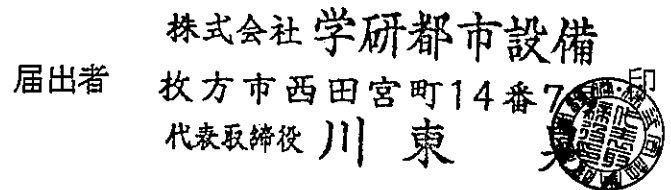 株式会社 学研都市設備
届出者 枚方市西田宮町14番7 印
代表取締役 川東